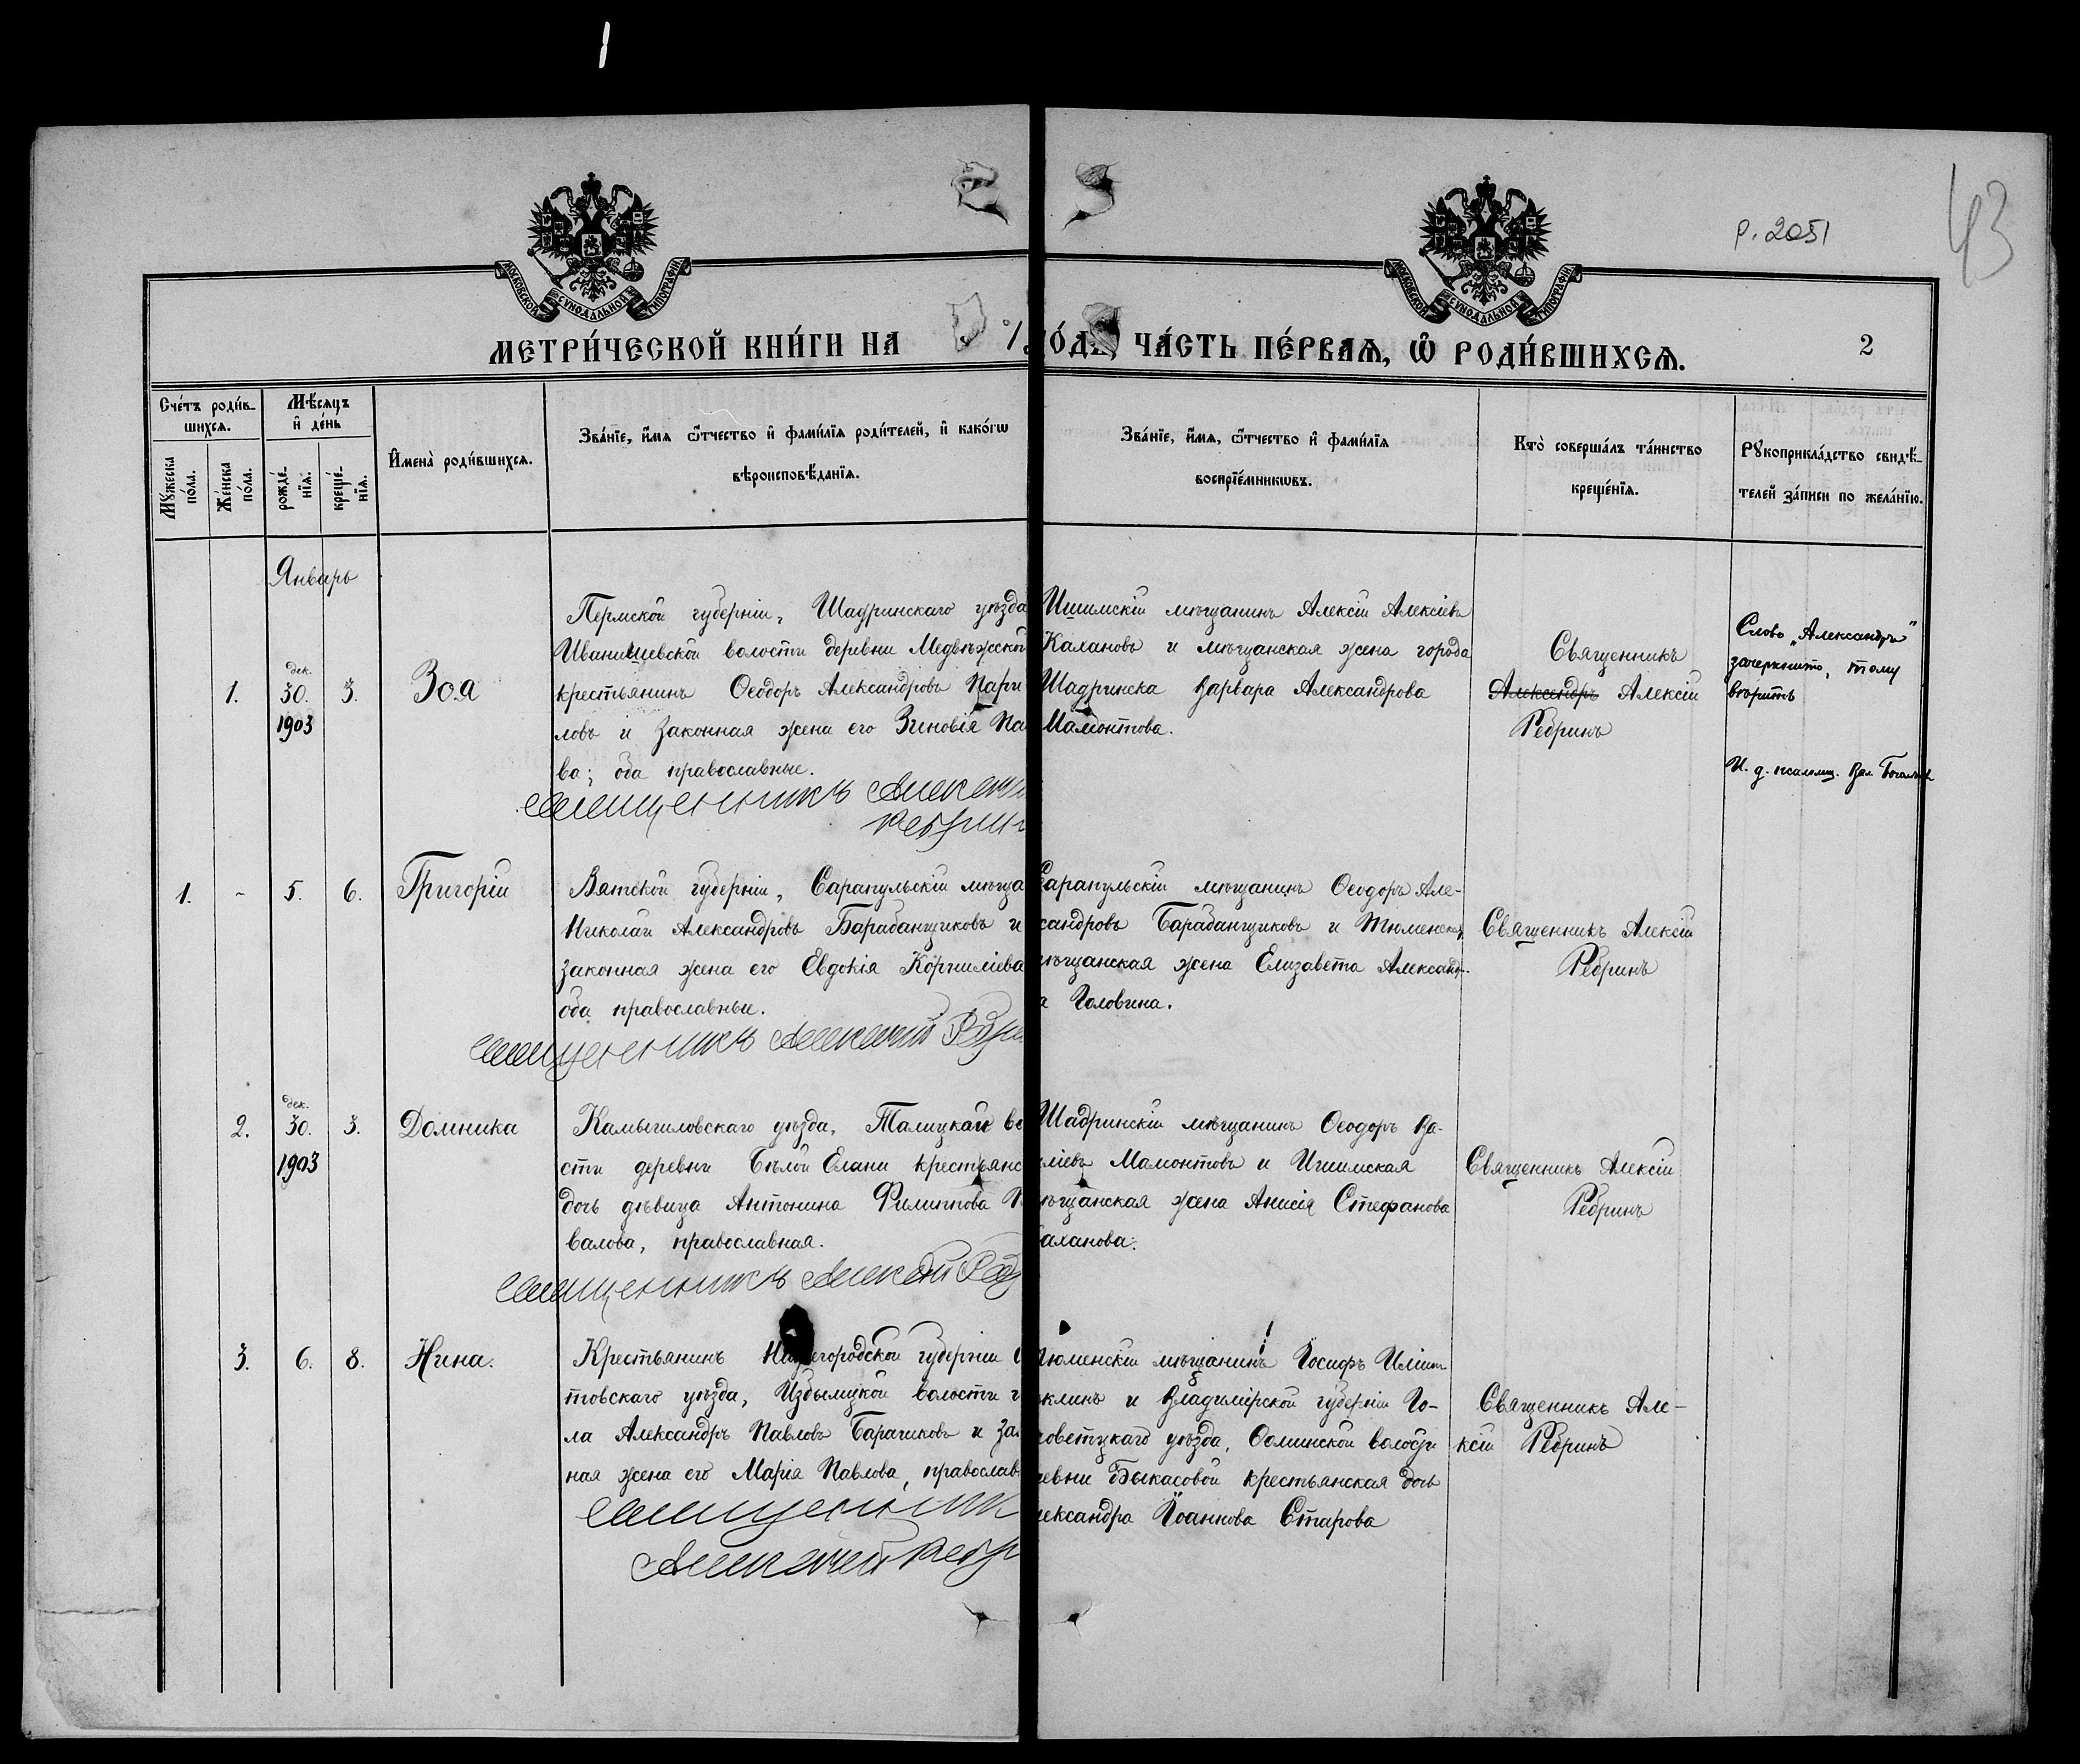 р. 2051
43
МОСКОВСКОЙ СѴНОДАЛЬНОЙ ТИПОГРАФІИ
МОСКОВСКОЙ СѴНОДАЛЬНОЙ ТИПОГРАФІИ
МЕТРИ́ЧЕСКОЙ КНИ́ГИ НА 1
ГО́ДЪ, ЧА́СТЬ ПЕ́РВАѦ, Ѽ РОДИ́ВШИХСѦ.
2
Сче́тъ роди́в-
шихсѧ.
Мꙋжеска
по́ла.
Же́нска
по́ла.
Мѣ́сѧцъ
и҆ де́нь
рожде́-
нїѧ.
креще́-
нїѧ.
И҆мена̀ роди́вшихсѧ.
Зва́нїе, и҆́мѧ ѻ҆́тчество и҆ фами́лїѧ роди́телей, и҆ како́гѡ
вѣроисповѣ́данїѧ.
Зва́нїе, и҆́мѧ, ѻ҆́тчество и҆ фами́лїѧ
воспрїе́мникѡвъ.
Кто̀ соверша́лъ та́инство
креще́нїѧ.
Рꙋкоприкла́дство свидѣ́-
телей за́писи по жела́нїю.
Январь
1.
дек.
30.
1903
3.
Зоя
Пермской губерніи, Шадринскаго уѣзда
Иванищевской волости деревни Медвѣжской
крестьянинъ Ѳеодоръ Александровъ
ловъ и законная жена его Зиновія
ва; оба православные.
Священникъ Алексій
Ребрин
Ишимскій мѣщанинъ Алексій Алексіевъ
Калановъ и мѣщанская жена города
Шадринска Варвара Александрова
Мамонтова.
Священникъ
Александръ Алексій
Ребринъ
Слово „Александръ"
зачеркнуто, тому
вѣрить
И. д. псаломщ. Вал.
1.
-
5.
6.
Григорій
Вятской губерніи, Сарапульскій мѣща
Николай Александровъ Барабанщиковъ и
законная жена его Евдокія Корниліева
оба православные.
Священникъ Алексій Ребри
Сарапульскій мѣщанинъ Ѳеодоръ Але-
ксандровъ Барабанщиковъ и Тюменская
мѣщанская жена Елизавета Александр-
а Головина.
Священникъ Алексій
Ребринъ
2.
дек.
30.
1903
3.
Домника
Камышловскаго уѣзда, Талицкой во
сти деревни Бѣлой Елани крестьянс
дочь дѣвица Антонина Филиппова
валова, православная.
Священникъ Алексій Реб
Шадринскій мѣщанинъ Ѳеодоръ Ва-
иліевъ Мамонтовъ и Ишимская
мѣщанская жена Анисія Стефанова
аланова.
Священникъ Алексій
Ребринъ
3.
6.
8.
Нина.
Крестьянинъ Нижегородской губерніи
товскаго уѣзда, Избылецкой волости
ла Александръ Павловъ Барачиковъ и зак
ная жена его Марія Павлова, православ
Священник
Алексей Ребр
Тюменскій мѣщанинъ Іосифъ Иліинъ
клинъ и Владимірской губерніи Го-
ховецкаго уѣзда, Ѳоминской волости
ревни Быкасовой крестьянская дочь
лександра Іоаннова Старова
Священникъ Але-
ксій Ребринъ